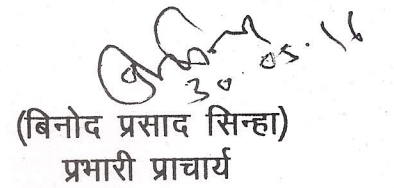 30.05.16
(बिनोद प्रसाद सिन्हा)
प्रभारी प्राचार्य